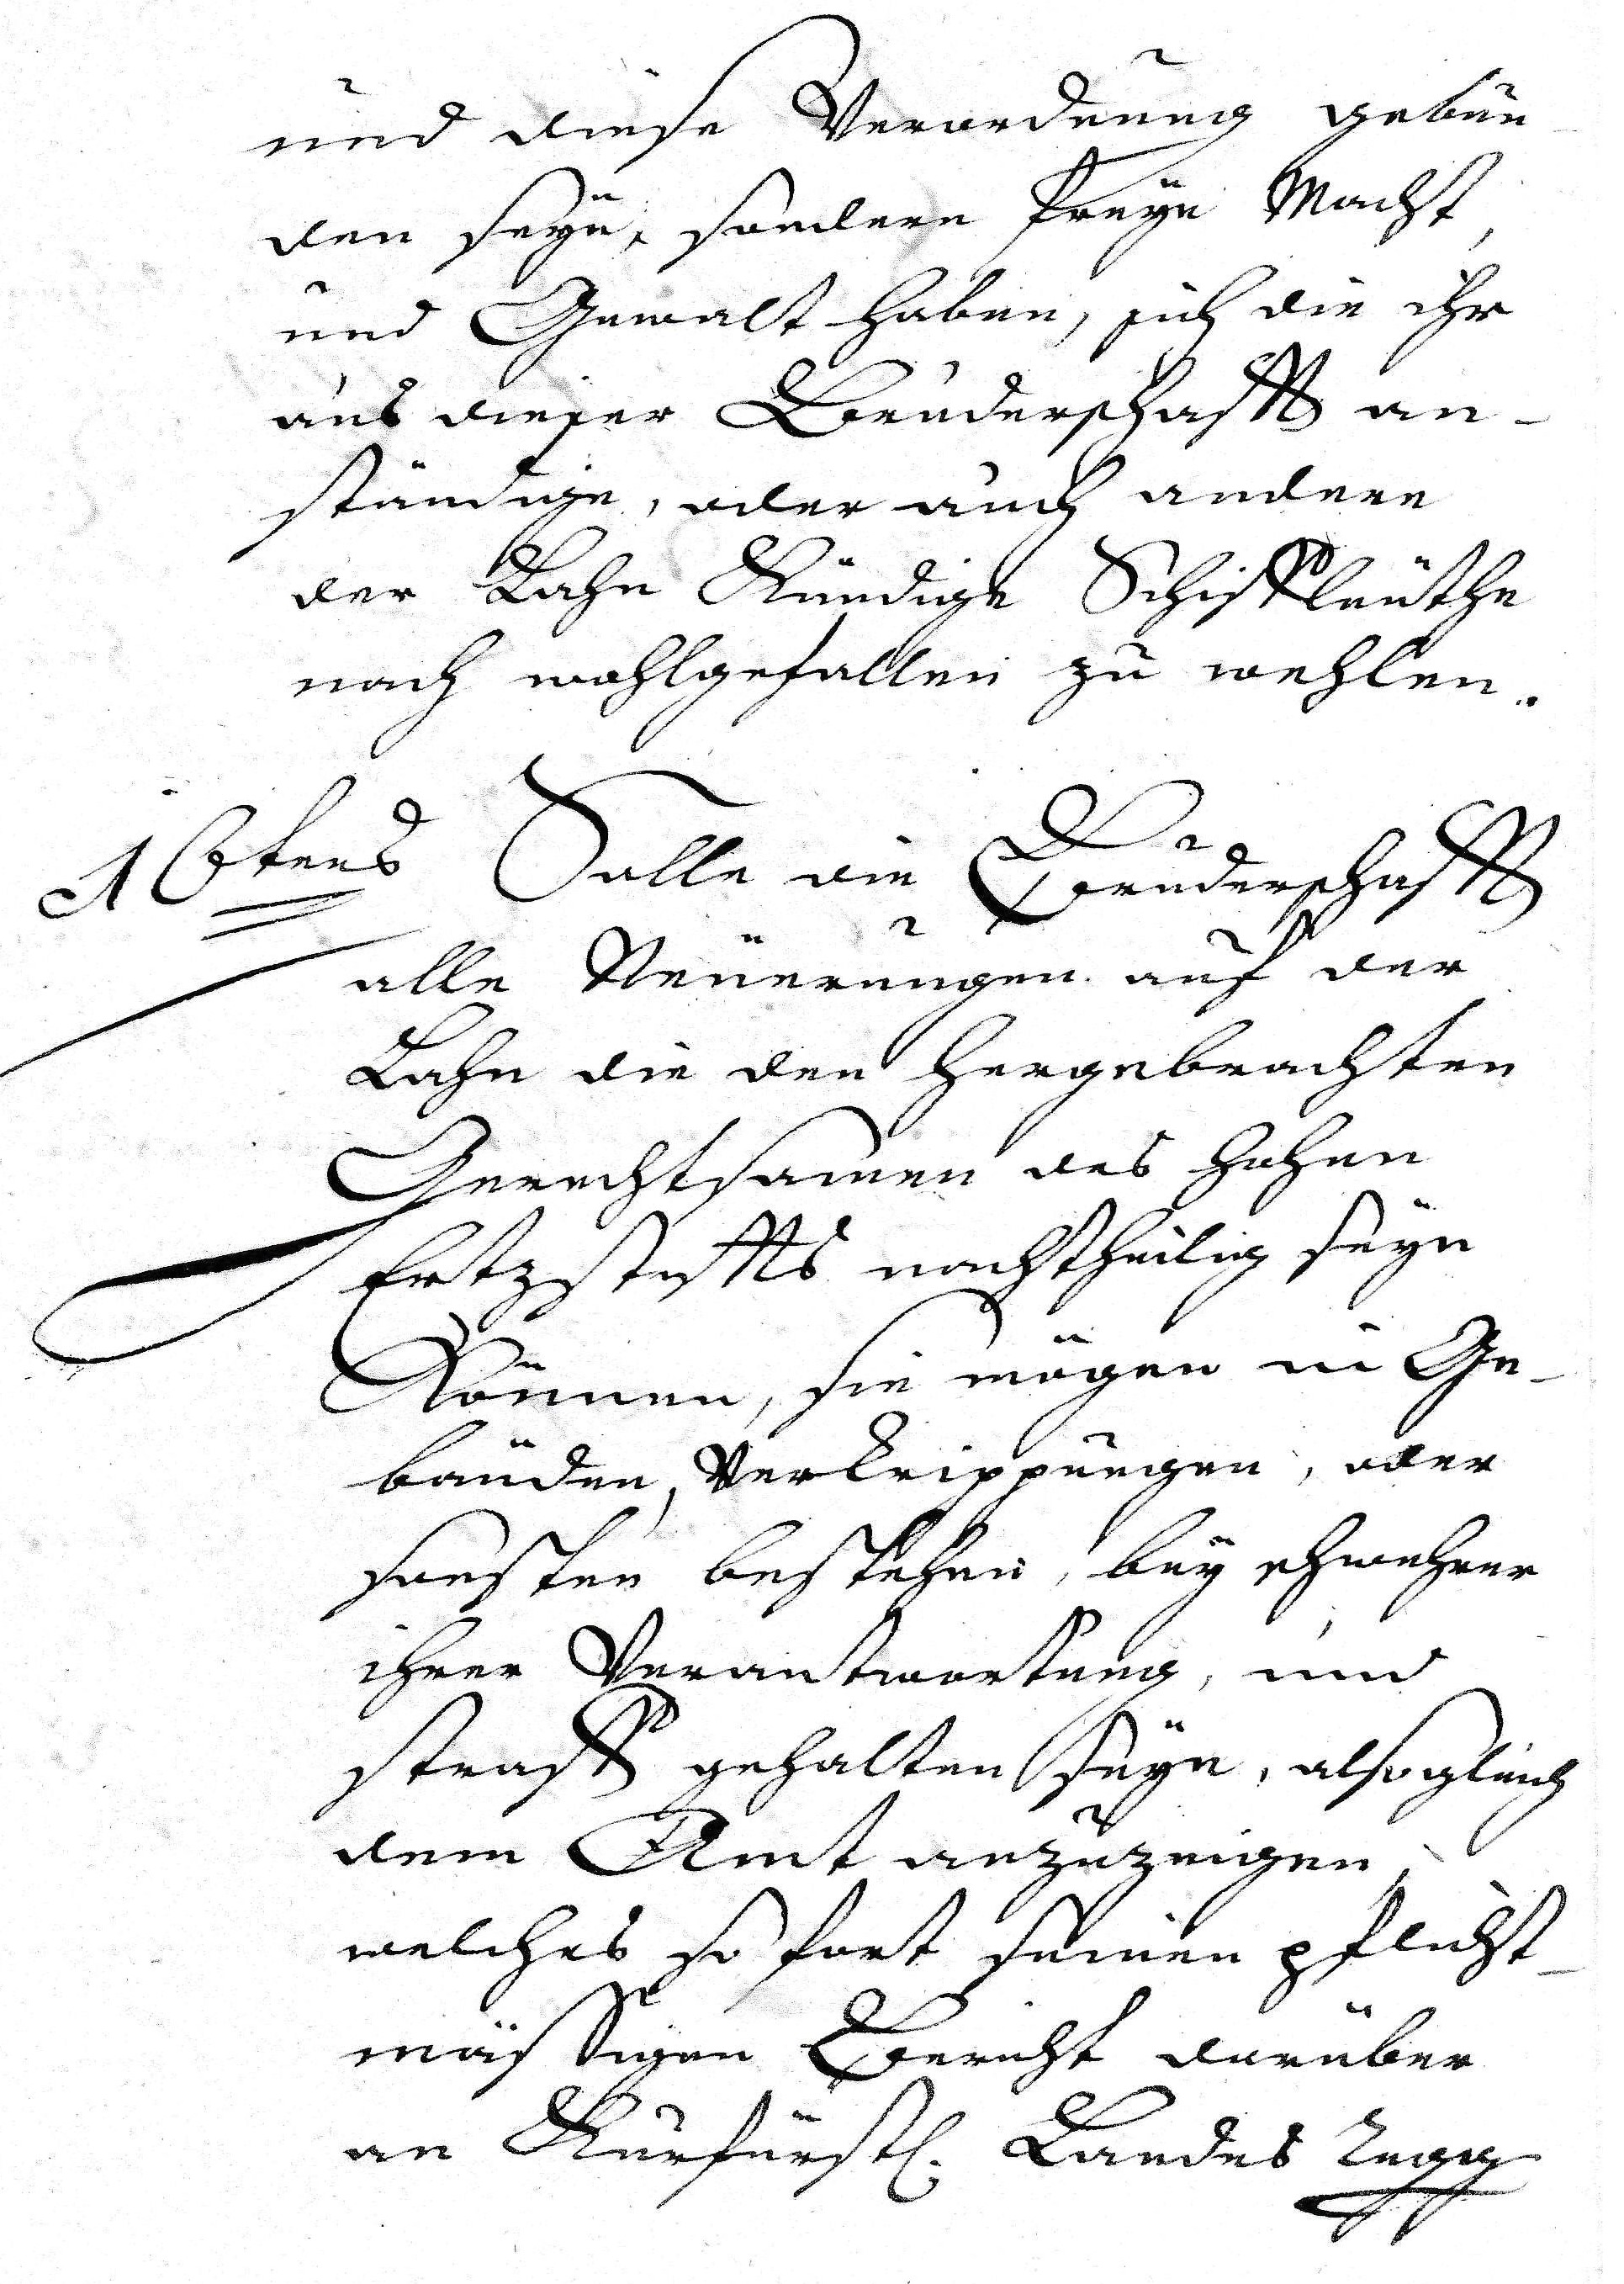 und diese Verordnung gebun-
den seÿn, sondern freÿe Macht,
und Gewalt haben, sich die ihr
aus dieser Bruderschafft an-
ständige, oder auch andere
der Lahn Kündige Schiffleüthe
nach wohlgefallen zu wehlen.
16tens Solle die Bruderschafft
alle Neüerungen auf der
Lahn die den hergebrachten
Gerechtsamen des hohen
Ertzstiffts nachtheilig seÿn
Können, sie mögen in Ge-
bäuden, Verkrippungen, oder
sonsten bestehen, beÿ schwehrer
ihrer Verantwortung, und
straff gehalten seÿn, alsogleich
dem Amt anzuzeigen,
welches so fort seinen pflicht-
mässigen Bericht darüber
an Kurfürstl. Landes Regg